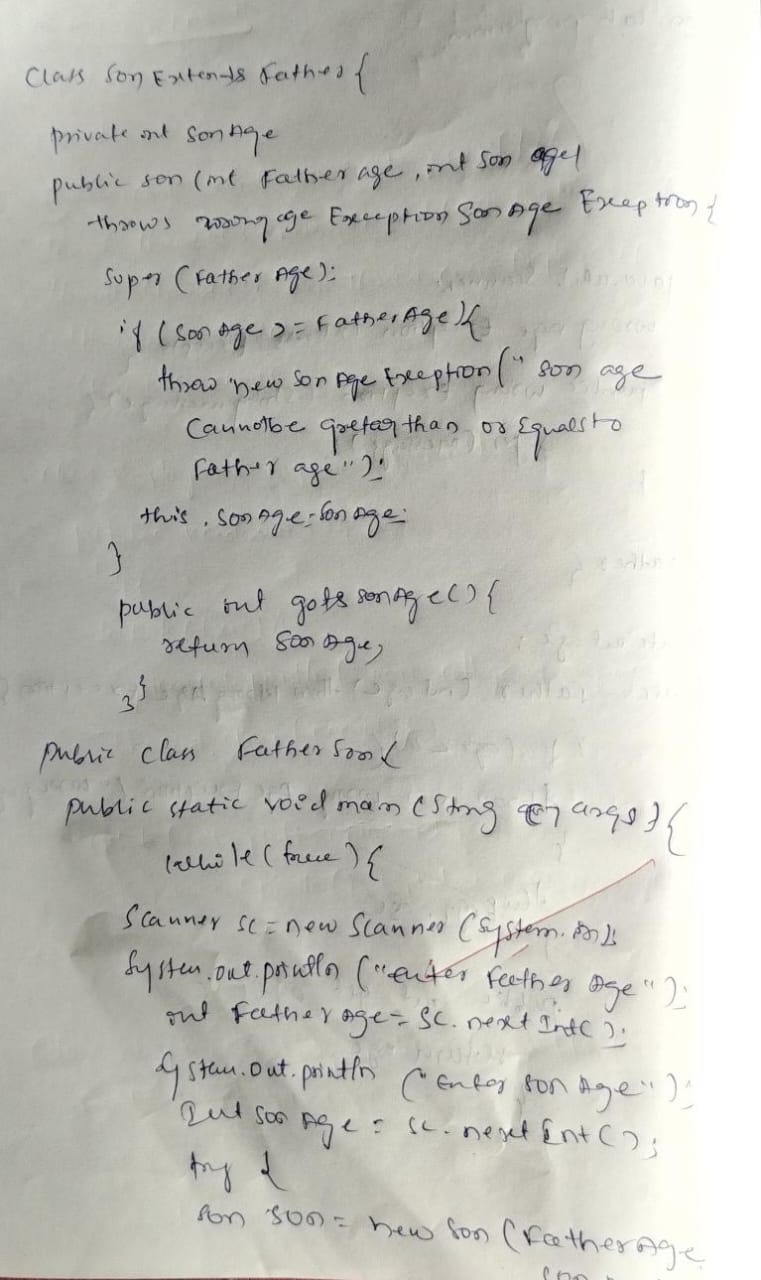 Class Son Extends Father {
private int SonAge
public son (int Father age, int Son age)
throws wrong age Exception Son Age Exception {
Super (Father Age);
if (Son Age >= Father Age) {
throw new Son Age Exception (" Son age
Cannotbe greter than or Equals to
Father age");
this . Son Age = Son Age;
}
public int gets son Age () {
return Son Age;
}
}
Public class Father Son {
public static void main (String args) {
while (true) {
Scanner sc = new Scanner (System.in);
System.out.println ("enter Father Age");
int Father age = Sc. next Int ();
System.out.println ("Enter Son Age");
Int Son Age = sc. next Int ();
try {
Son Son = new Son (Father Age